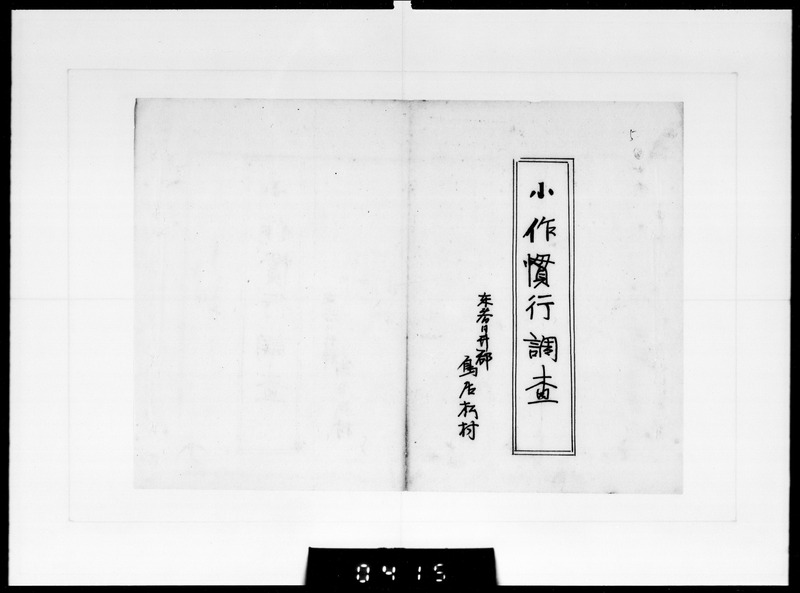 小作慣行調査
東春日井郡
鳥居松村
5
0415